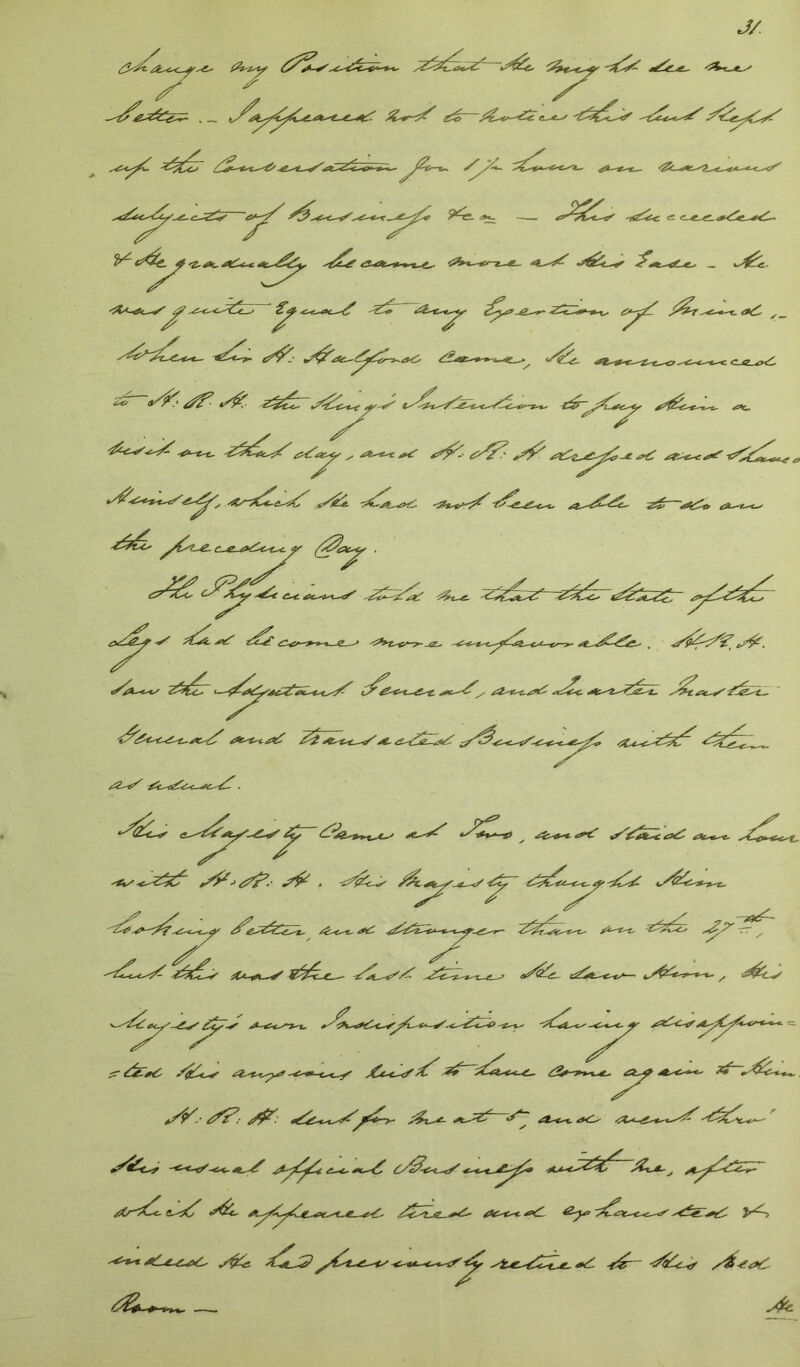 31.
change my Position that He may - tʃ see me
better. _ I appeared not to Notice this but kept
up the Conversation for ½ hour on various
subjects of Business &c. — His succeeded
& He gradually became more at His ease _ He
was quite equal to any Exertion of Mind, _
When Sir H: Halford came, He announced
to H: R: H: the King's Intention to pay Him a
visit on that day, and H: R: H: dressed and shaved
Himself, which He had not been able to do on
the preceding Day.
The Physicians told me that the State of the
Legs had become more unfavorable. H: R: H.
saw the Adjutant General, and Quarter Master
General and transacted Business with them
as usual.
His Majesty Came at Two, and staid an hour
with H: R: H. His Majesty thought Him
looking better, and stronger than on the 27th,
but this was the last time He saw Him, His
Majesty's own Indisposition having disappoin=
=ted His anxious wish to have Come again to Him.
H: R: H: sent for me at 5, and went thro'
His usual official Business with me, after
which He appeared tired and exhausted &
indeed He had previously retired to His Bed
Room —
He